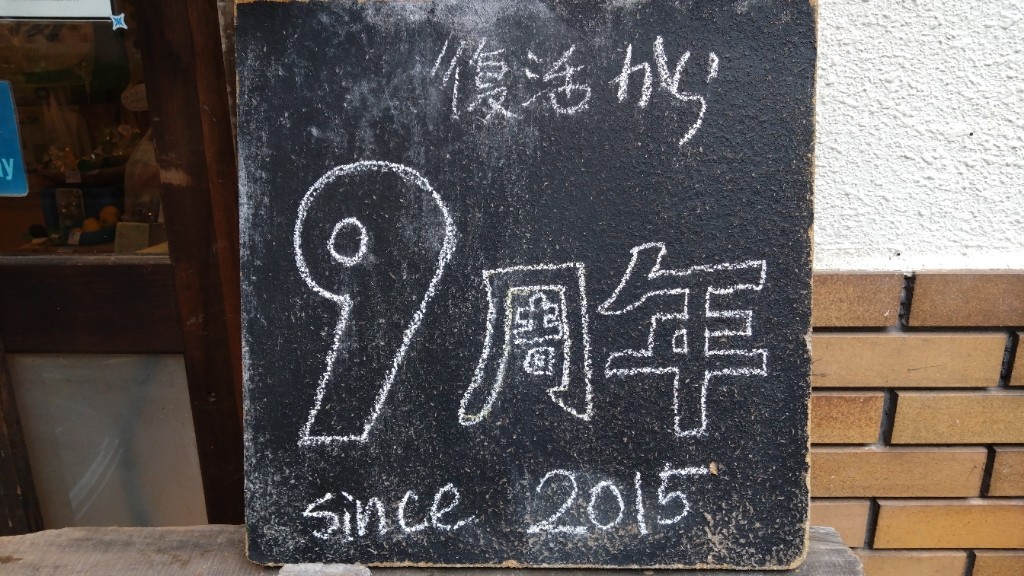 復活から
9周年
since 2015
ay